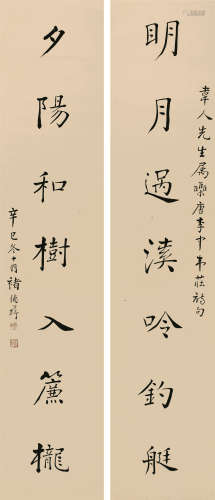 韋人先生属集唐李中韋莊詩句
明月過溪吟釣艇
夕陽和樹入簾櫳
辛巳冬十月褚德彝